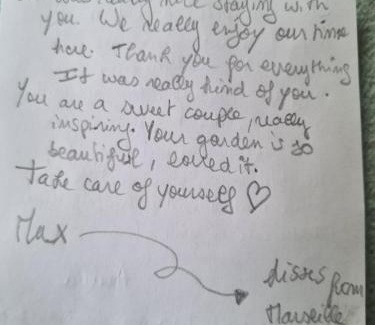 was really nice staying with
you. We really enjoy our time
here. Thank you for everything
It was really kind of you.
You are a sweet couple, really
inspiring. Your garden is so
beautiful, loved it.
Take care of yourself ♡
Max
from
Marseille